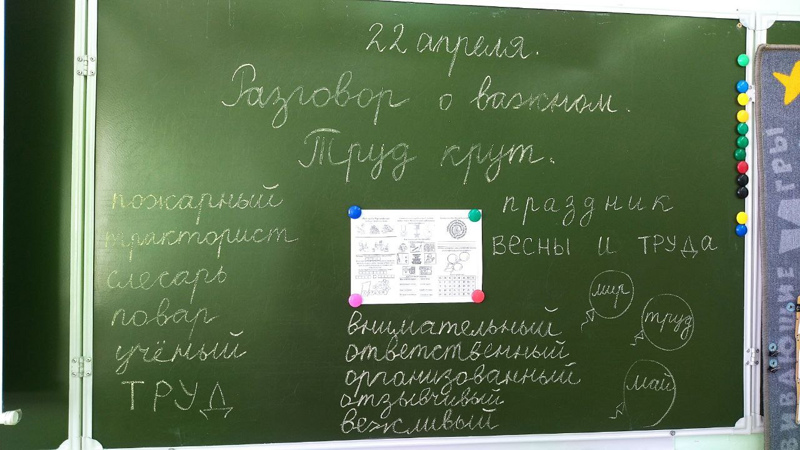 22 апреля.
Разговор о важном.
Труд крут.
пожарный
тракторист
слесарь
повар
учёный
ТРУД
праздник
ВЕСНЫ И ТРУДА
мир
труд
май
внимательный
ответственный
организованный
отзывчивый
вежливый